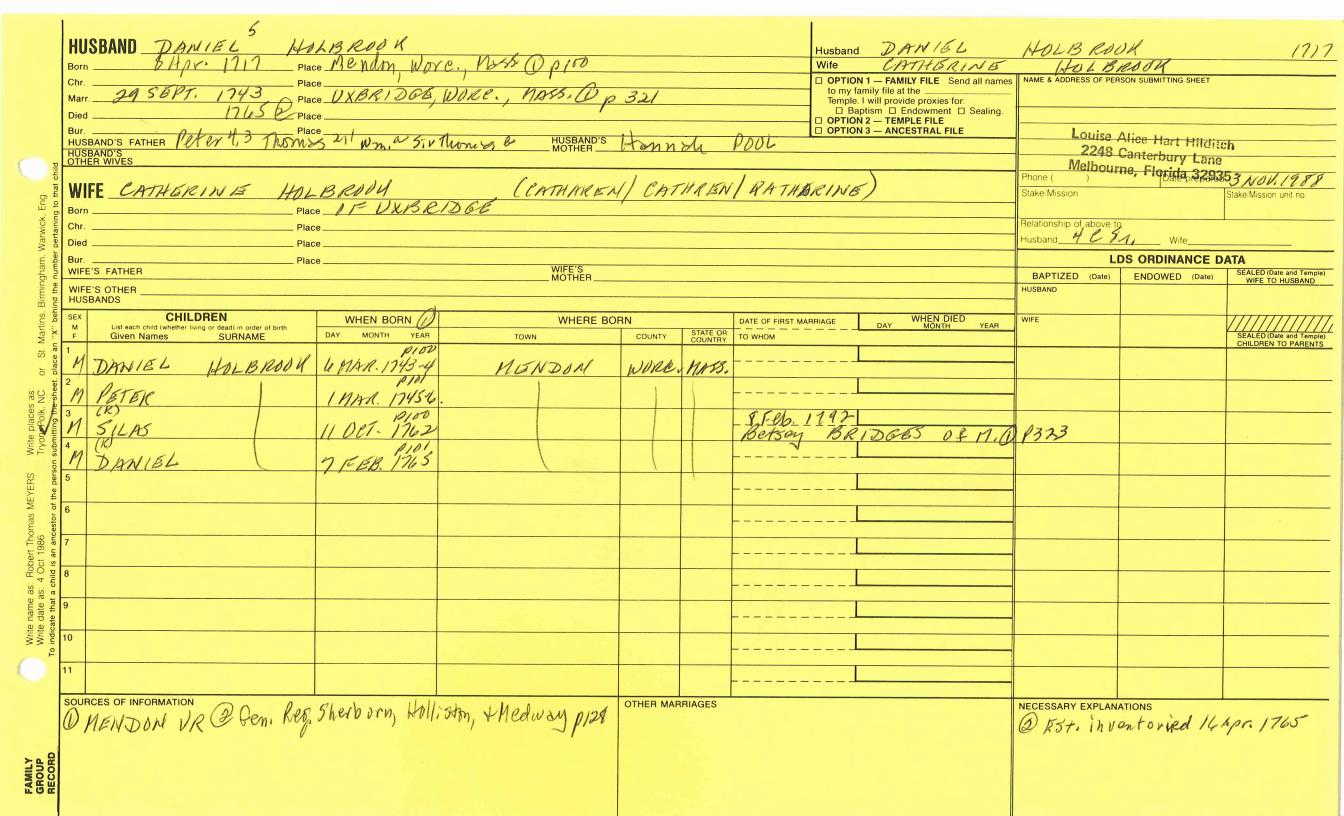 HUSBAND DANIEL 5 HOLBROOK
Born 6 Apr. 1717 Place Mendon, Worc., Mass ① p100
Chr. Place
Marr 29 SEPT. 1743 Place UXBRIDGE, WORC., MASS. ① p 321
Died 1765 ② Place
Bur. Place
HUSBAND'S FATHER Peter 4,3 Thomas 2,1 Wm. Sir Thomas HUSBAND'S MOTHER Hannah POOL
HUSBAND'S OTHER WIVES
WIFE CATHERINE HOLBROOK (CATHAREN/CATHREN/KATHARINE)
Born Place OF UXBRIDGE
Chr. Place
Died Place
Bur. Place
WIFE'S FATHER WIFE'S MOTHER
WIFE'S OTHER HUSBANDS
Husband DANIEL HOLBROOK 1717
Wife CATHERINE HOLBROOK
☐ OPTION 1 — FAMILY FILE Send all names
to my family file at the
Temple. I will provide proxies for:
☐ Baptism ☐ Endowment ☐ Sealing.
☐ OPTION 2 — TEMPLE FILE
☐ OPTION 3 — ANCESTRAL FILE
NAME & ADDRESS OF PERSON SUBMITTING SHEET
Louise Alice Hart Hilditch
2248 Canterbury Lane
Melbourne, Florida 32935
Phone ( ) Date prepared 3 NOV. 1988
Stake/Mission Stake/Mission unit no.
Relationship of above to
Husband 4 C Gr. Wife
LDS ORDINANCE DATA
BAPTIZED (Date) ENDOWED (Date) SEALED (Date and Temple) WIFE TO HUSBAND
HUSBAND
WIFE
SEALED (Date and Temple) CHILDREN TO PARENTS
SEX M F
CHILDREN
List each child (whether living or dead) in order of birth
Given Names SURNAME
WHEN BORN ①
DAY MONTH YEAR
WHERE BORN
TOWN COUNTY STATE OR COUNTRY
DATE OF FIRST MARRIAGE
TO WHOM
WHEN DIED
DAY MONTH YEAR
p100
1 M DANIEL HOLBROOK 6 MAR. 1743-4 MENDON WORC. MASS.
p101
2 M PETER 1 MAR. 1745-6
(R) p100 8 Feb. 1792
3 M SILAS 11 OCT. 1762 Betsey BRIDGES of M. ① p323
(R) p101
4 M DANIEL 7 FEB. 1765
5
6
7
8
9
10
11
SOURCES OF INFORMATION
① MENDON VR ② Gen. Reg. Sherborn, Holliston, + Medway p128
OTHER MARRIAGES
NECESSARY EXPLANATIONS
② Est. inventoried 16 Apr. 1765
Write name as: Robert Thomas MEYERS Write places as: Tryon, Polk, NC or St. Martins, Birmingham, Warwick, Eng.
Write date as: 4 Oct 1986
To indicate that a child is an ancestor of the person submitting the sheet, place an "X" behind the number pertaining to that child
FAMILY
GROUP
RECORD